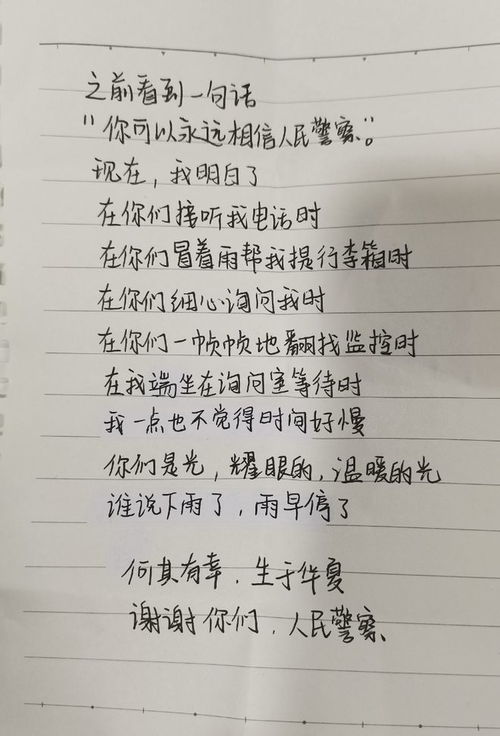 之前看到一句话
"你可以永远相信人民警察。"
现在，我明白了
在你们接听我电话时
在你们冒着雨帮我提行李箱时
在你们细心询问我时
在你们一帧帧地翻找监控时
在我端坐在询问室等待时
我一点也不觉得时间好慢
你们是光，耀眼的，温暖的光
谁说下雨了，雨早停了
何其有幸，生于华夏
谢谢你们，人民警察